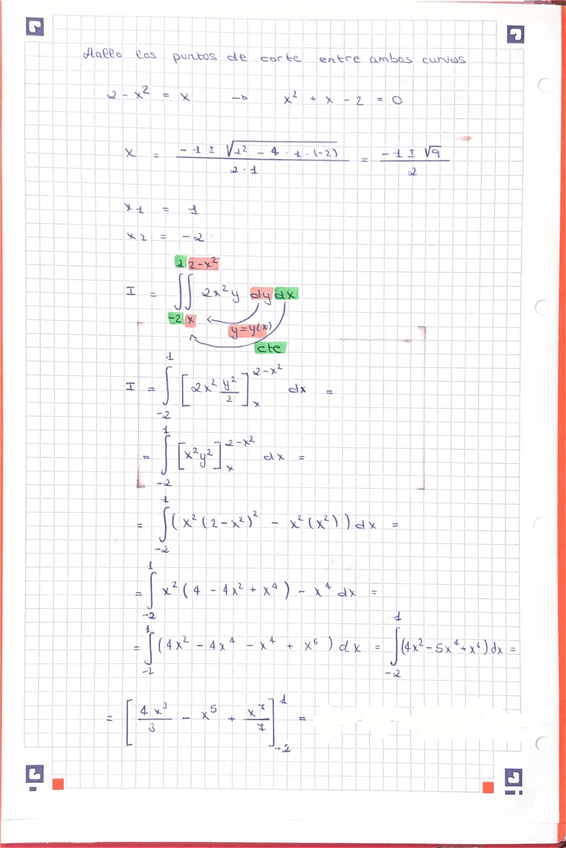 Hallo los puntos de corte entre ambas curvas
2 - x² = x → x² + x - 2 = 0
x = (-1 ± √(1² - 4 · 1 · (-2))) / (2 · 1) = (-1 ± √9) / 2
x₁ = 1
x₂ = -2
I = ∫₋₂¹ ∫ₓ^(2-x²) 2x²y dy dx
y = y(x)
cte
I = ∫₋₂¹ [2x² y²/2]ₓ^(2-x²) dx =
= ∫₋₂¹ [x²y²]ₓ^(2-x²) dx =
= ∫₋₂¹ (x²(2-x²)² - x²(x²)) dx =
= ∫₋₂¹ x²(4 - 4x² + x⁴) - x⁴ dx =
= ∫₋₂¹ (4x² - 4x⁴ - x⁴ + x⁶) dx = ∫₋₂¹ (4x² - 5x⁴ + x⁶) dx =
= [4x³/3 - x⁵ + x⁷/7]₋₂¹ =